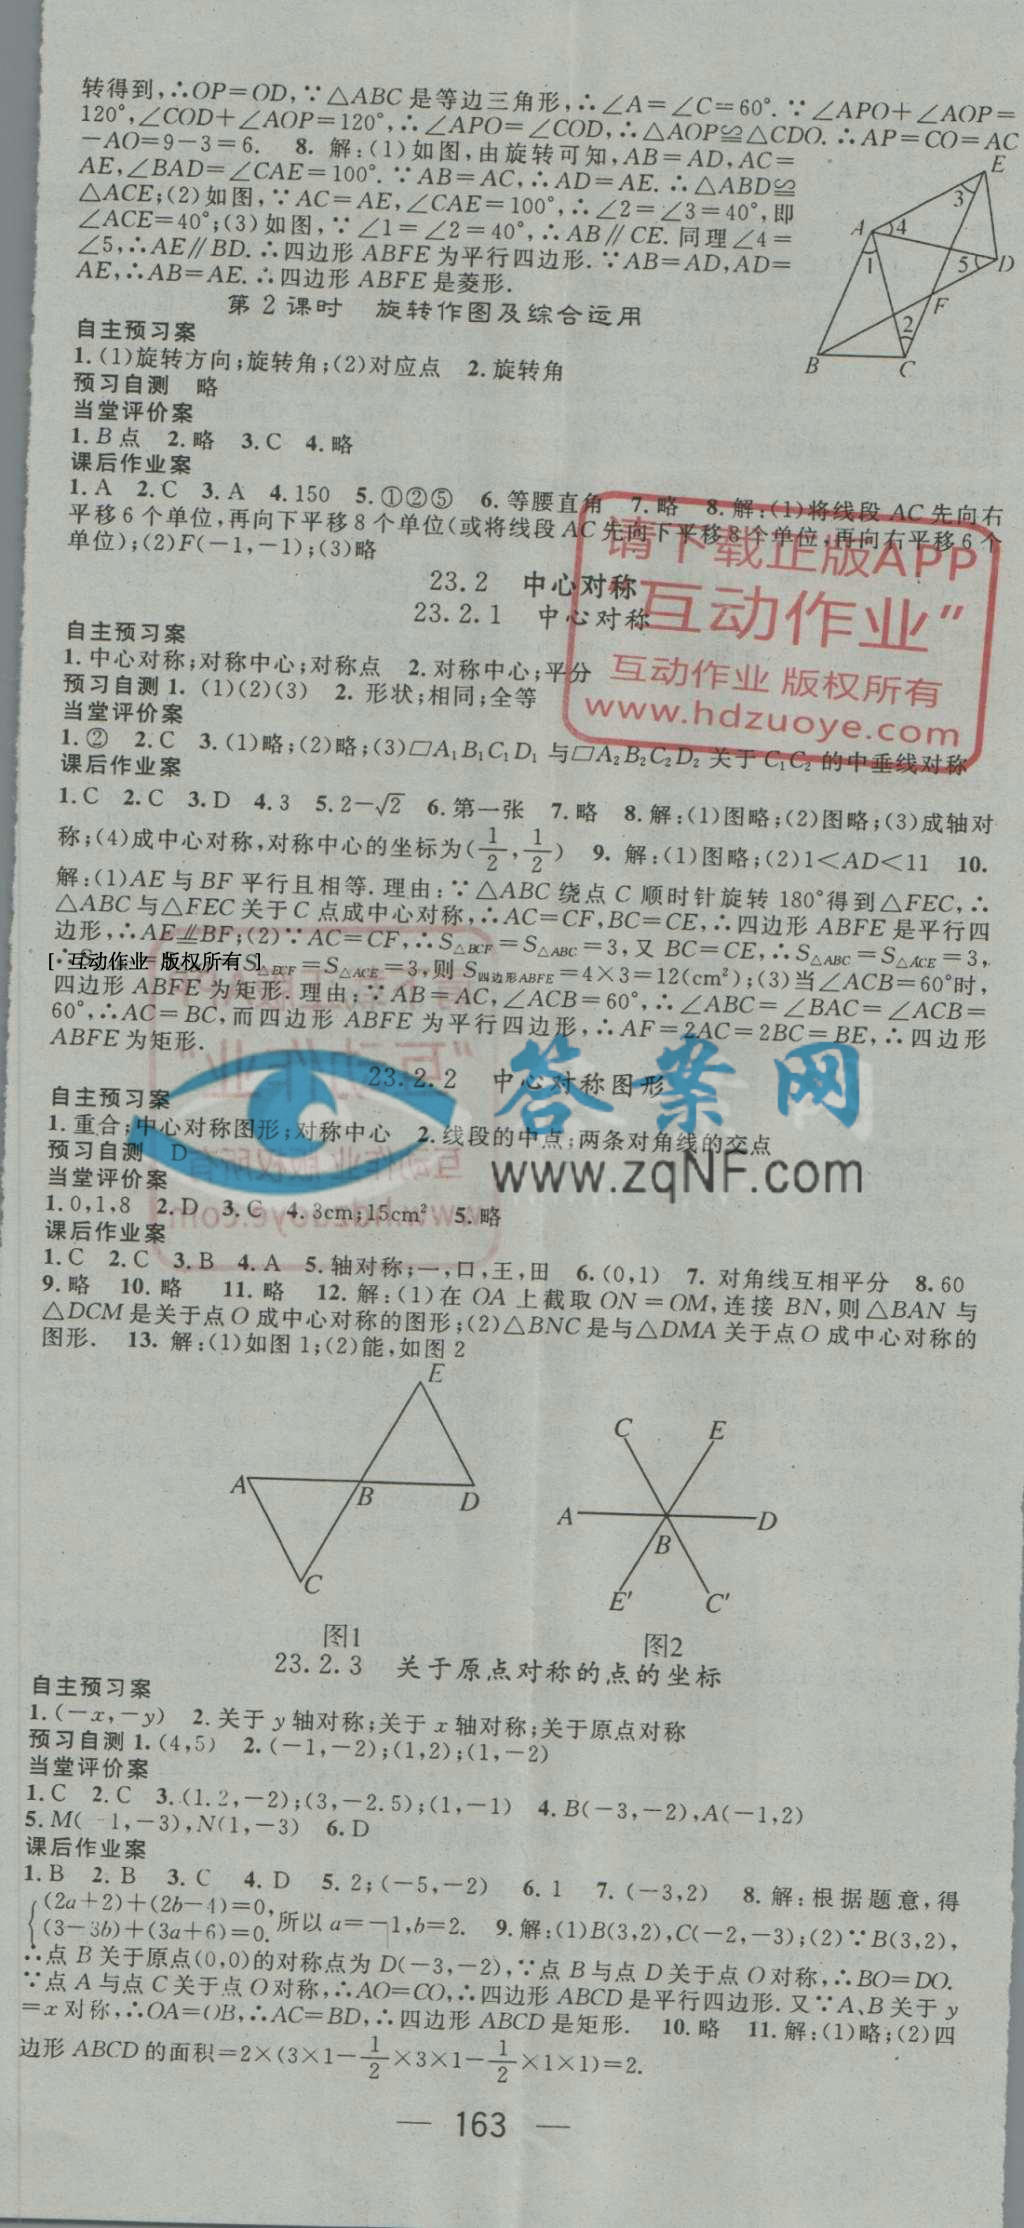 转得到,∴OP=OD,∵△ABC是等边三角形,∴∠A=∠C=60°.∵∠APO+∠AOP=
120°,∠COD+∠AOP=120°,∴∠APO=∠COD,∴△AOP≌△CDO.∴AP=CO=AC
-AO=9-3=6. 8. 解:(1)如图,由旋转可知,AB=AD,AC=
AE,∠BAD=∠CAE=100°.∵AB=AC,∴AD=AE.∴△ABD≌
△ACE;(2)如图,∵AC=AE,∠CAE=100°,∴∠2=∠3=40°,即
∠ACE=40°;(3)如图,∵∠1=∠2=40°,∴AB∥CE.同理∠4=
∠5,∴AE∥BD.∴四边形ABFE为平行四边形.∵AB=AD,AD=
AE,∴AB=AE.∴四边形ABFE是菱形.
E
3
A
4
1
5
D
F
2
B
C
第2课时 旋转作图及综合运用
自主预习案
1.(1)旋转方向;旋转角;(2)对应点 2.旋转角
预习自测 略
当堂评价案
1.B点 2.略 3.C 4.略
课后作业案
1.A 2.C 3.A 4.150 5.①②⑤ 6.等腰直角 7.略 8.解:(1)将线段AC先向右
平移6个单位,再向下平移8个单位(或将线段AC先向下平移8个单位,再向右平移6个
单位);(2)F(-1,-1);(3)略
请下载正版APP
"互动作业"
互动作业 版权所有
www.hdzuoye.com
23.2 中心对称
23.2.1 中心对称
自主预习案
1.中心对称;对称中心;对称点 2.对称中心;平分
预习自测 1.(1)(2)(3) 2.形状;相同;全等
当堂评价案
1.② 2.C 3.(1)略;(2)略;(3)▱A₁B₁C₁D₁与▱A₂B₂C₂D₂关于C₁C₂的中垂线对称
课后作业案
1.C 2.C 3.D 4.3 5.2-√2 6.第一张 7.略 8.解:(1)图略;(2)图略;(3)成轴对
称;(4)成中心对称,对称中心的坐标为(1/2,1/2) 9.解:(1)图略;(2)1<AD<11 10.
解:(1)AE与BF平行且相等.理由:∵△ABC绕点C顺时针旋转180°得到△FEC,∴
△ABC与△FEC关于C点成中心对称,∴AC=CF,BC=CE,∴四边形ABFE是平行四
边形,∴AE∥BF;(2)∵AC=CF,∴S△BCF=S△ABC=3,又BC=CE,∴S△ABC=S△ACE=3,
[ 互动作业 版权所有 ]
S△ECF=S△ACE=3,则S四边形ABFE=4×3=12(cm²);(3)当∠ACB=60°时,
四边形ABFE为矩形.理由:∵AB=AC,∠ACB=60°,∴∠ABC=∠BAC=∠ACB=
60°,∴AC=BC,而四边形ABFE为平行四边形,∴AF=2AC=2BC=BE,∴四边形
ABFE为矩形.
答案网
www.zqNF.com
23.2.2 中心对称图形
自主预习案
1.重合;中心对称图形;对称中心 2.线段的中点;两条对角线的交点
预习自测 D
当堂评价案
1.0,1,8 2.D 3.C 4.3cm;15cm² 5.略
课后作业案
1.C 2.C 3.B 4.A 5.轴对称;一,口,王,田 6.(0,1) 7.对角线互相平分 8.60
9.略 10.略 11.略 12.解:(1)在OA上截取ON=OM,连接BN,则△BAN与
△DCM是关于点O成中心对称的图形;(2)△BNC是与△DMA关于点O成中心对称的
图形. 13.解:(1)如图1;(2)能,如图2
E
A
B
D
C
图1
C
E
A
B
D
E′
C′
图2
23.2.3 关于原点对称的点的坐标
自主预习案
1.(-x,-y) 2.关于y轴对称;关于x轴对称;关于原点对称
预习自测 1.(4,5) 2.(-1,-2);(1,2);(1,-2)
当堂评价案
1.C 2.C 3.(1.2,-2);(3,-2.5);(1,-1) 4.B(-3,-2),A(-1,2)
5.M(-1,-3),N(1,-3) 6.D
课后作业案
1.B 2.B 3.C 4.D 5.2;(-5,-2) 6.1 7.(-3,2) 8.解:根据题意,得
{(2a+2)+(2b-4)=0,
(3-3b)+(3a+6)=0. 所以a=-1,b=2. 9.解:(1)B(3,2),C(-2,-3);(2)∵B(3,2),
∴点B关于原点(0,0)的对称点为D(-3,-2),∵点B与点D关于点O对称,∴BO=DO.
∵点A与点C关于点O对称,∴AO=CO,∴四边形ABCD是平行四边形.又∵A、B关于y
=x对称,∴OA=OB,∴AC=BD,∴四边形ABCD是矩形. 10.略 11.解:(1)略;(2)四
边形ABCD的面积=2×(3×1-1/2×3×1-1/2×1×1)=2.
— 163 —